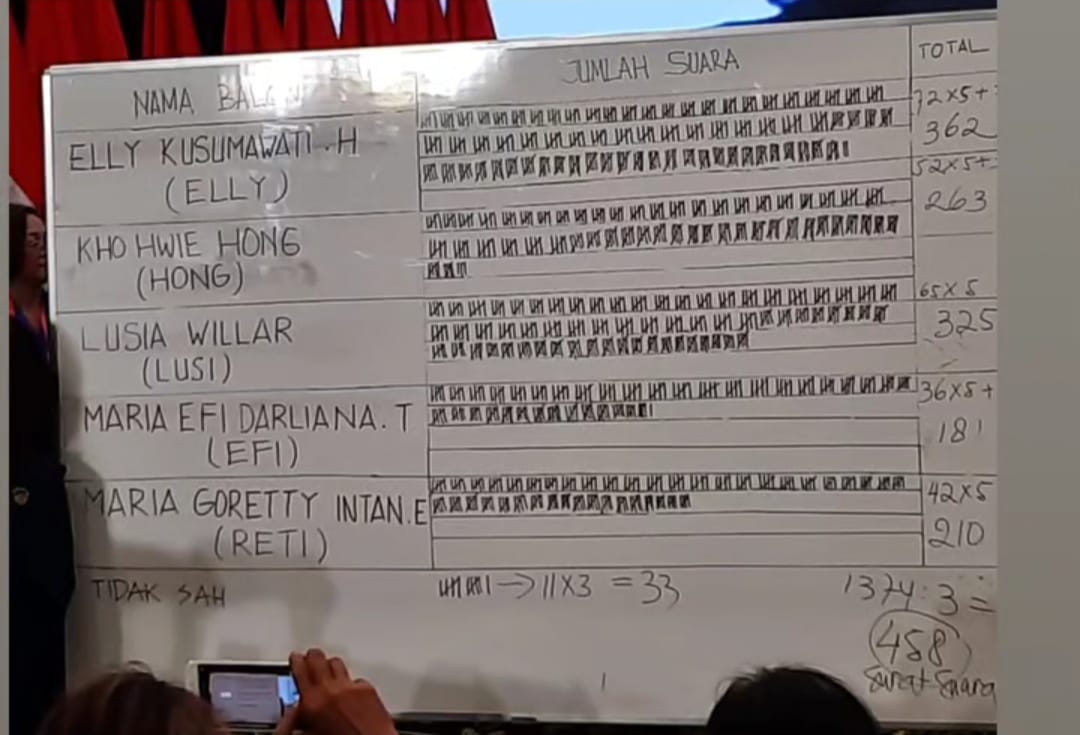 NAMA
JUMLAH SUARA
TOTAL
ELLY KUSUMAWATI.H
(ELLY)
72x5+
362
KHO HWIE HONG
(HONG)
52x5+
263
LUSIA WILLAR
(LUSI)
65x5
325
MARIA EFI DARLIANA.T
(EFI)
36x5+
181
MARIA GORETTY INTAN.E
(RETI)
42x5
210
TIDAK SAH
→ 11x3 = 33
1374:3=
458
Surat Suara